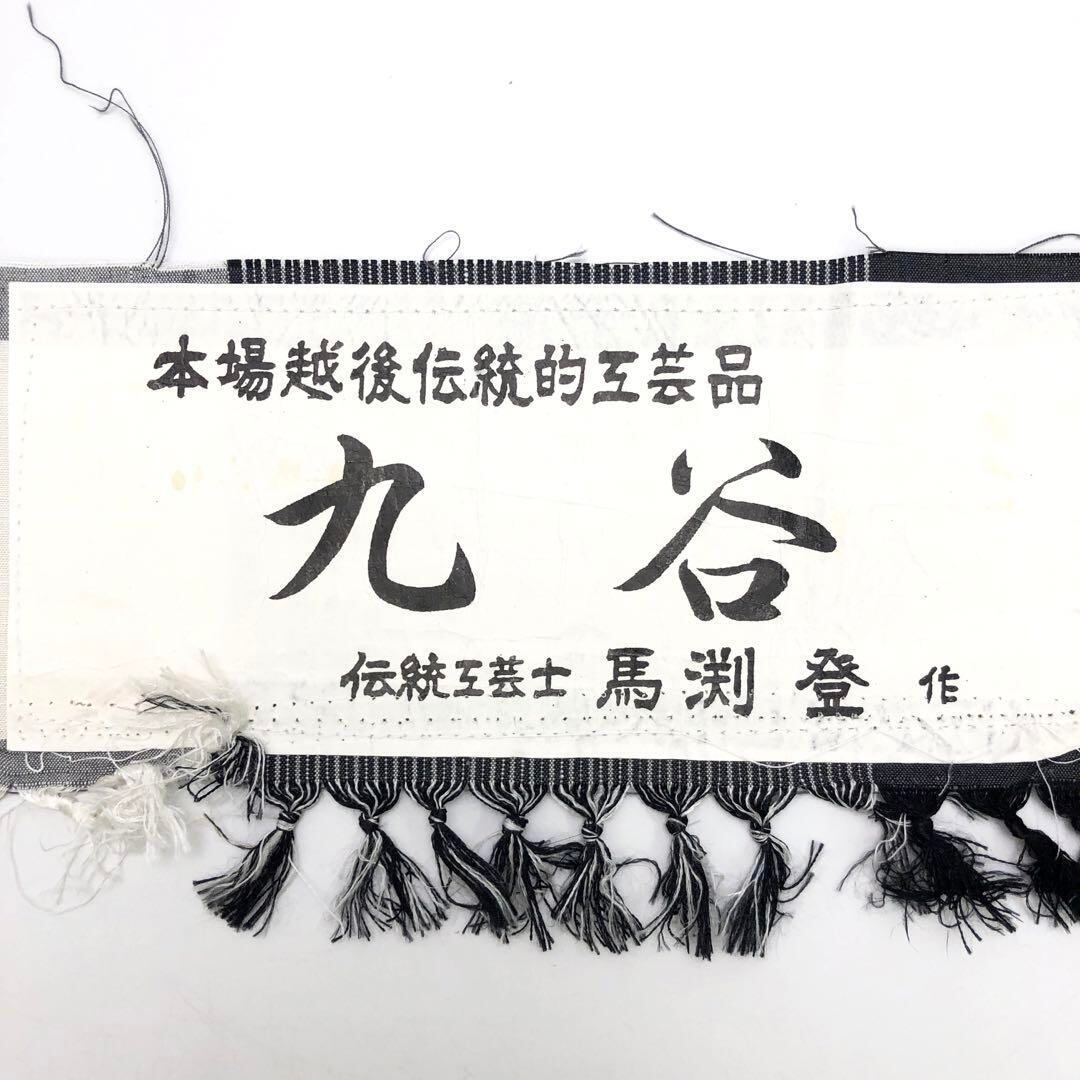 本場越後伝統的工芸品
九谷
伝統工芸士 馬渕登 作